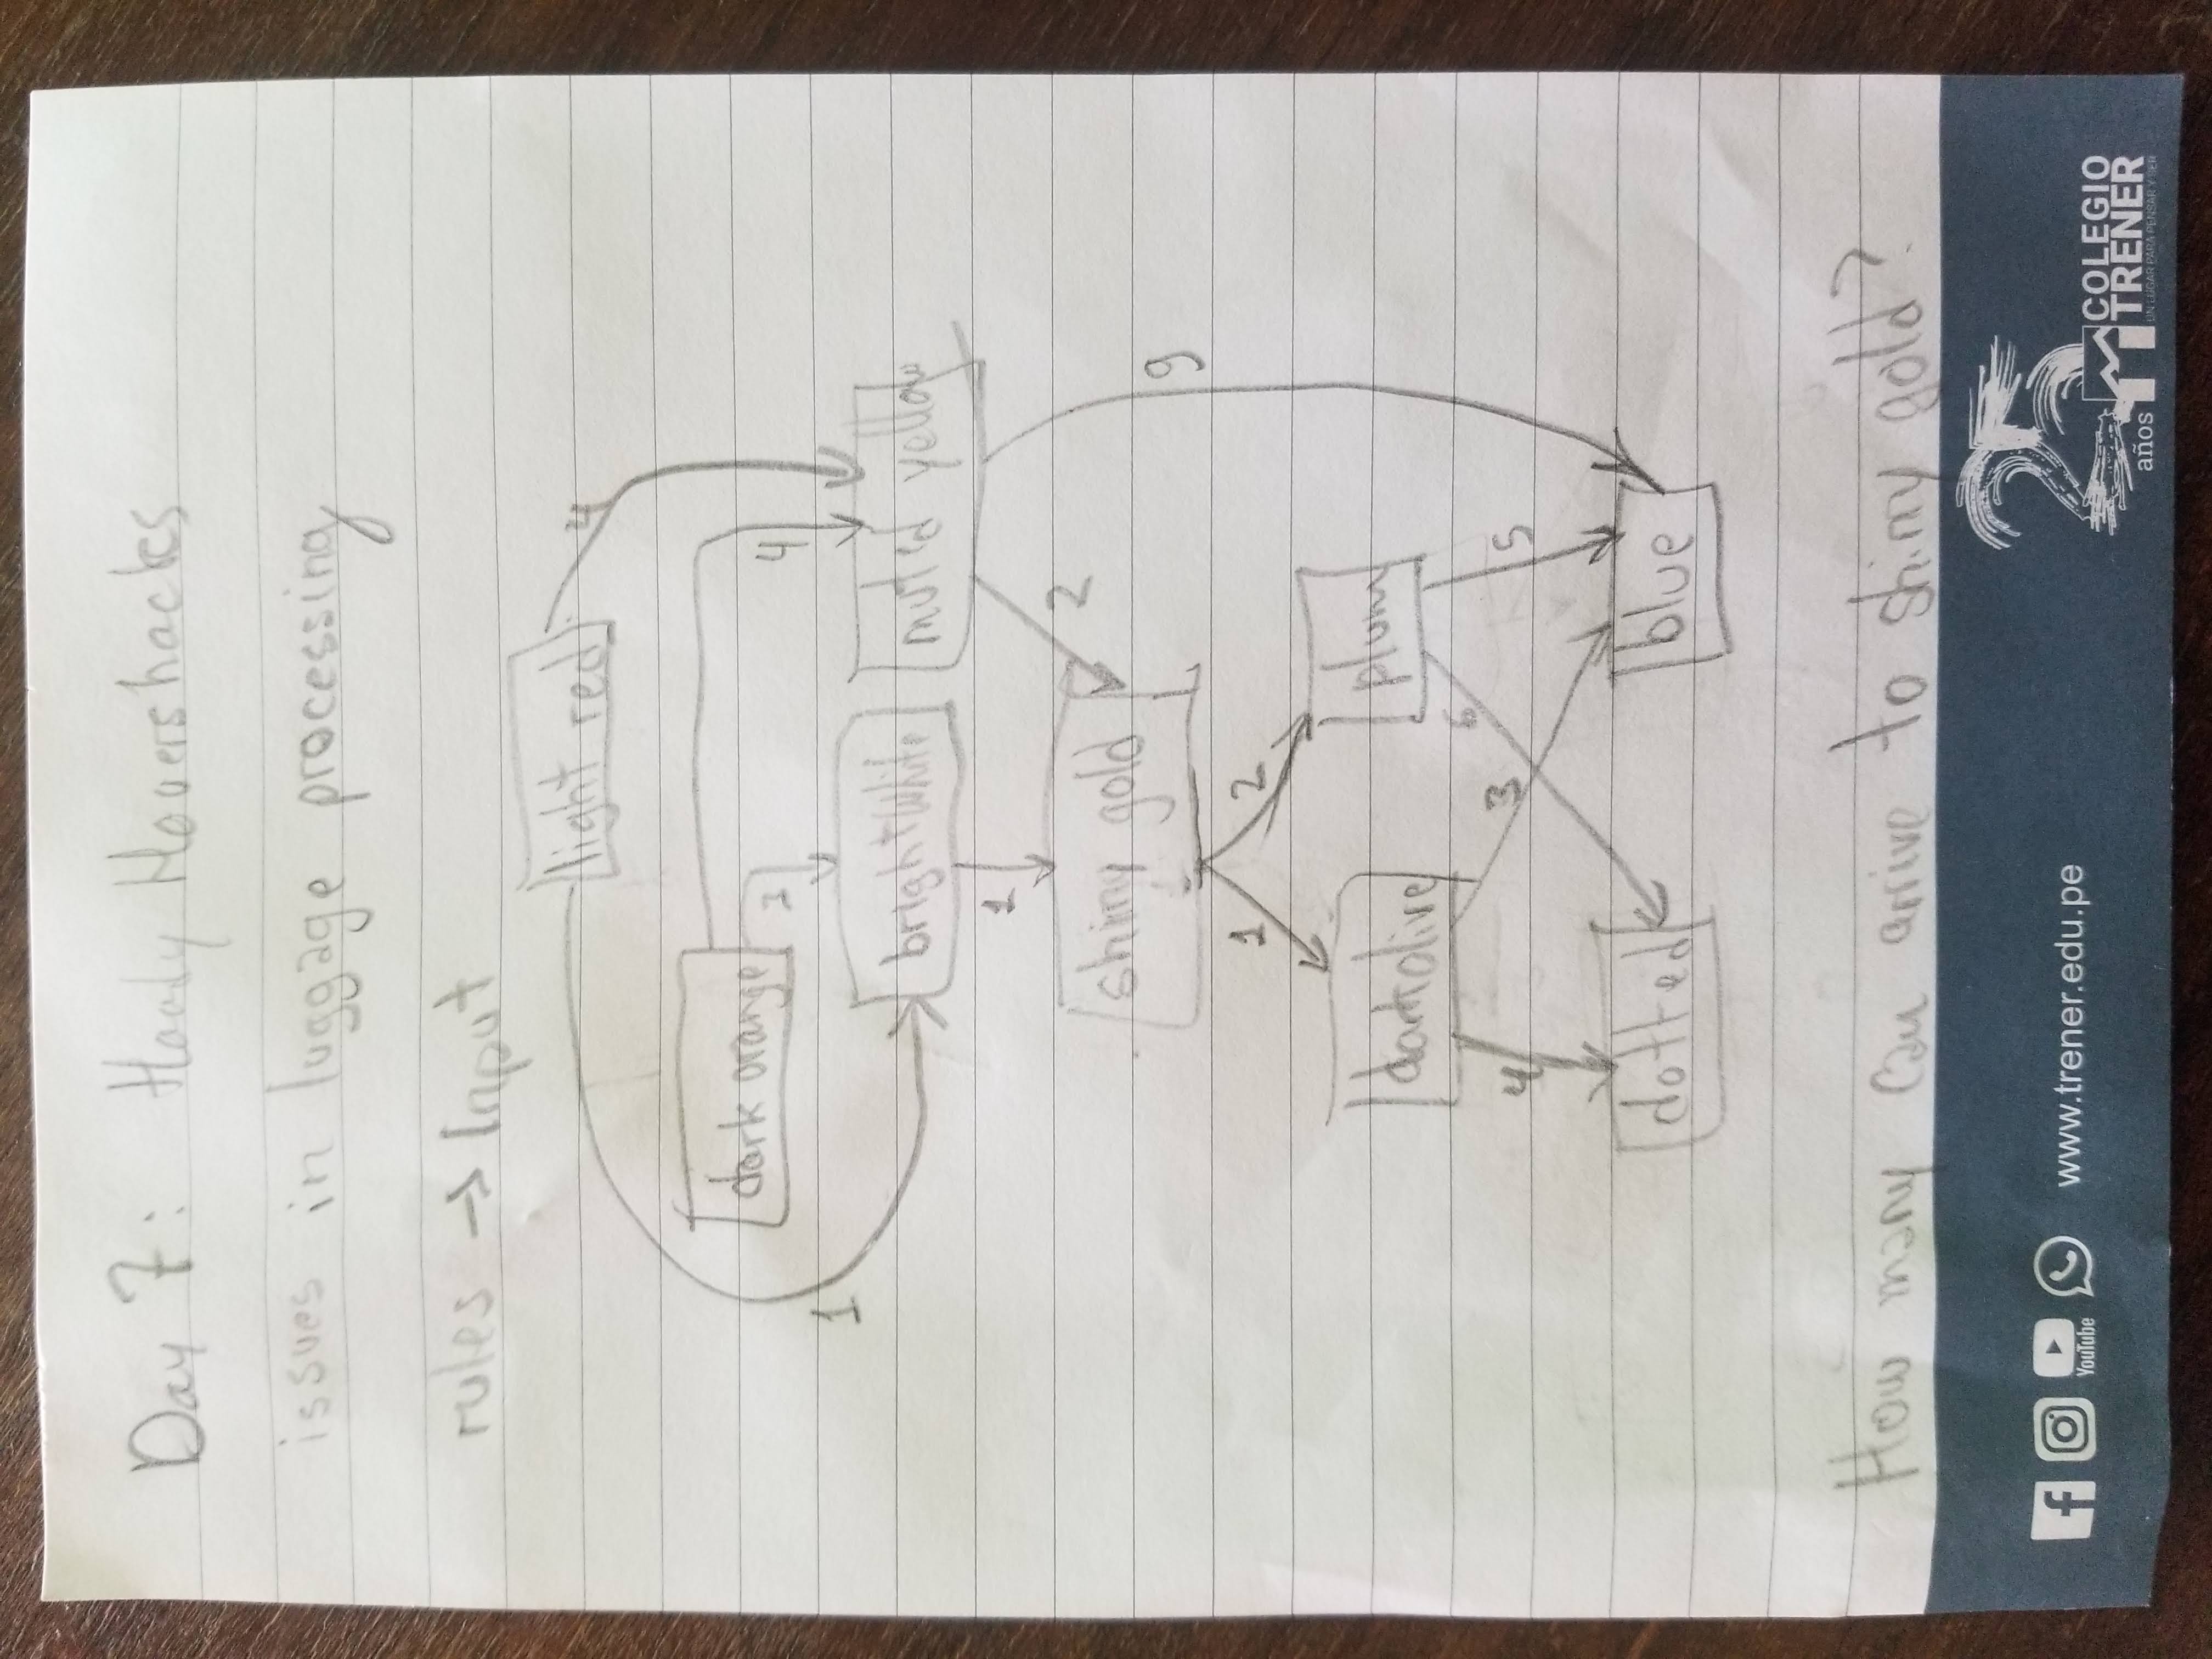 Day 7: Handy Hovershacks
issues in luggage processing
rules → Input
light red
4
dark orange
3
4
1
bright white
muted yellow
1
2
shiny gold
9
1
2
dark olive
plum
4
3
6
5
dotted
blue
How many can arrive to shiny gold?
YouTube
www.trener.edu.pe
25
años
COLEGIO
TRENER
UN LUGAR PARA PENSAR Y SER